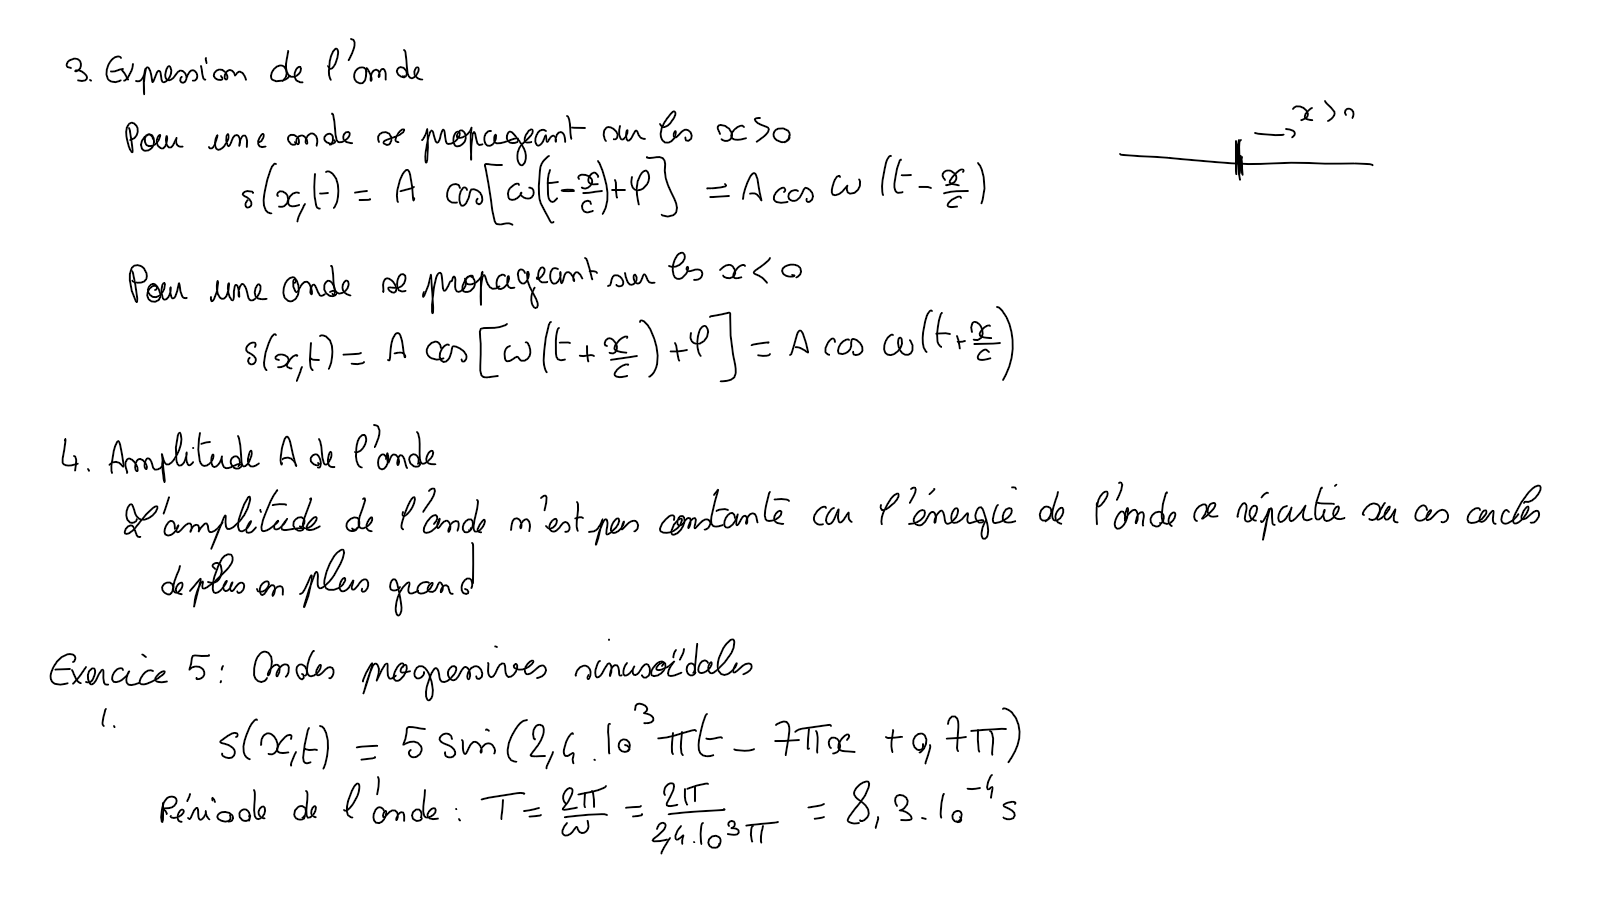 3. Expression de l'onde
x>0
Pour une onde se propageant sur les x>0
s(x,t) = A cos[ω(t-x/c)+φ] = A cos ω(t-x/c)
Pour une onde se propageant sur les x<0
s(x,t) = A cos[ω(t+x/c)+φ] = A cos ω(t+x/c)
4. Amplitude A de l'onde
L'amplitude de l'onde n'est pas constante car l'énergie de l'onde se répartie sur ces cercles
de plus en plus grand
Exercice 5: Ondes progressives sinusoïdales
1.
s(x,t) = 5 sin(2,4.10³πt - 7πx + 0,7π)
Période de l'onde: T = 2π/ω = 2π/2,4.10³π = 8,3.10⁻⁴s